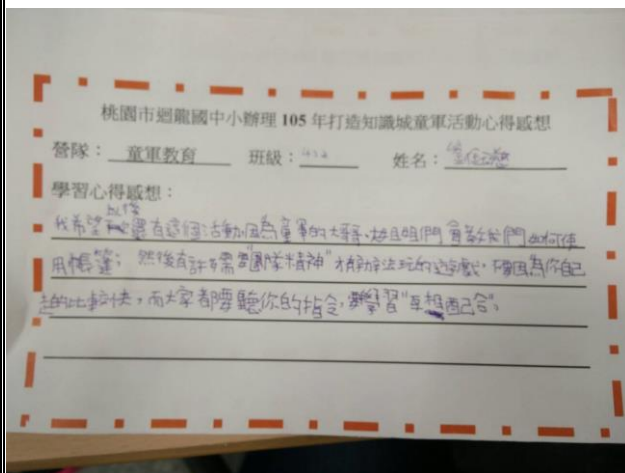 桃園市迴龍國中小辦理 105 年打造知識城童軍活動心得感想
營隊： 童軍教育 班級： 姓名：
學習心得感想：
以後
我希望還有這個活動,因為童軍的大哥、大姐姐們會教我們如何使
用帳篷；然後有許多需要"團隊精神"才有辦法玩的遊戲,不會因為你自己
走的比較快，而大家都要聽你的指令,要學習"互相配合"。